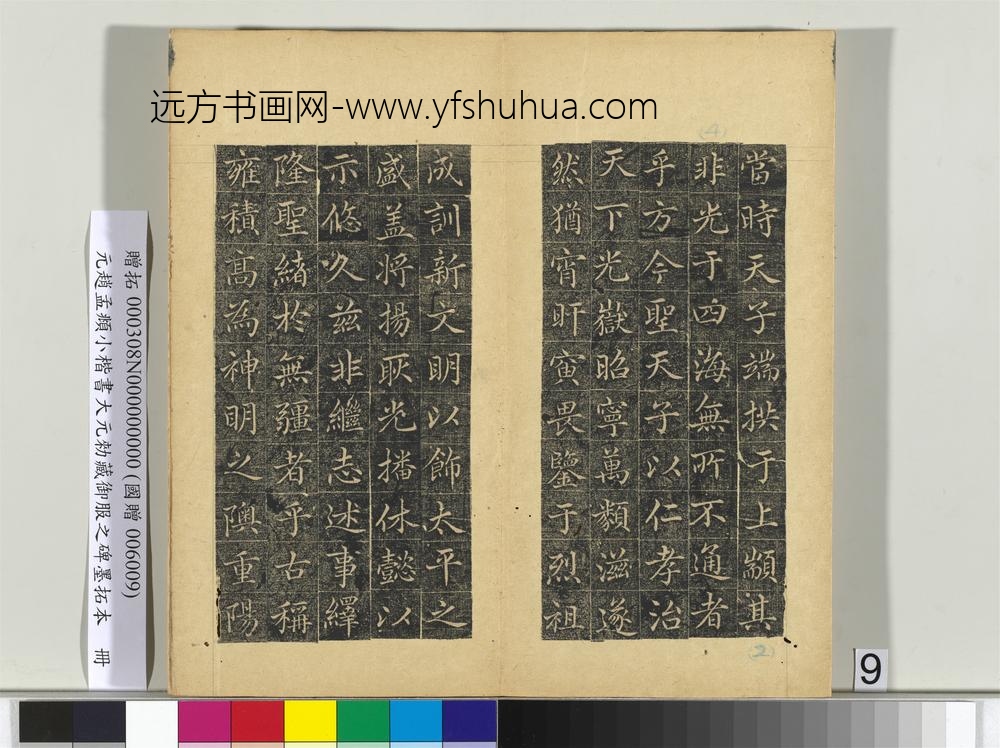 远方书画网-www.yfshuhua.com
當時天子端拱于上顒其
非光于四海無所不通者
乎方今聖天子以仁孝治
天下光嶽昭寧萬類滋遂
然猶宵旰寅畏鑒于烈祖
成訓新文明以飾太平之
盛盖将揚耿光播休懿以
示悠久兹非繼志述事繹
隆聖緒於無疆者乎古稱
雍積高為神明之隩重陽
(4)
(2)
贈拓 000308N000000000 (國贈 006009)
元趙孟頫小楷書大元勑藏御服之碑墨拓本 冊
9